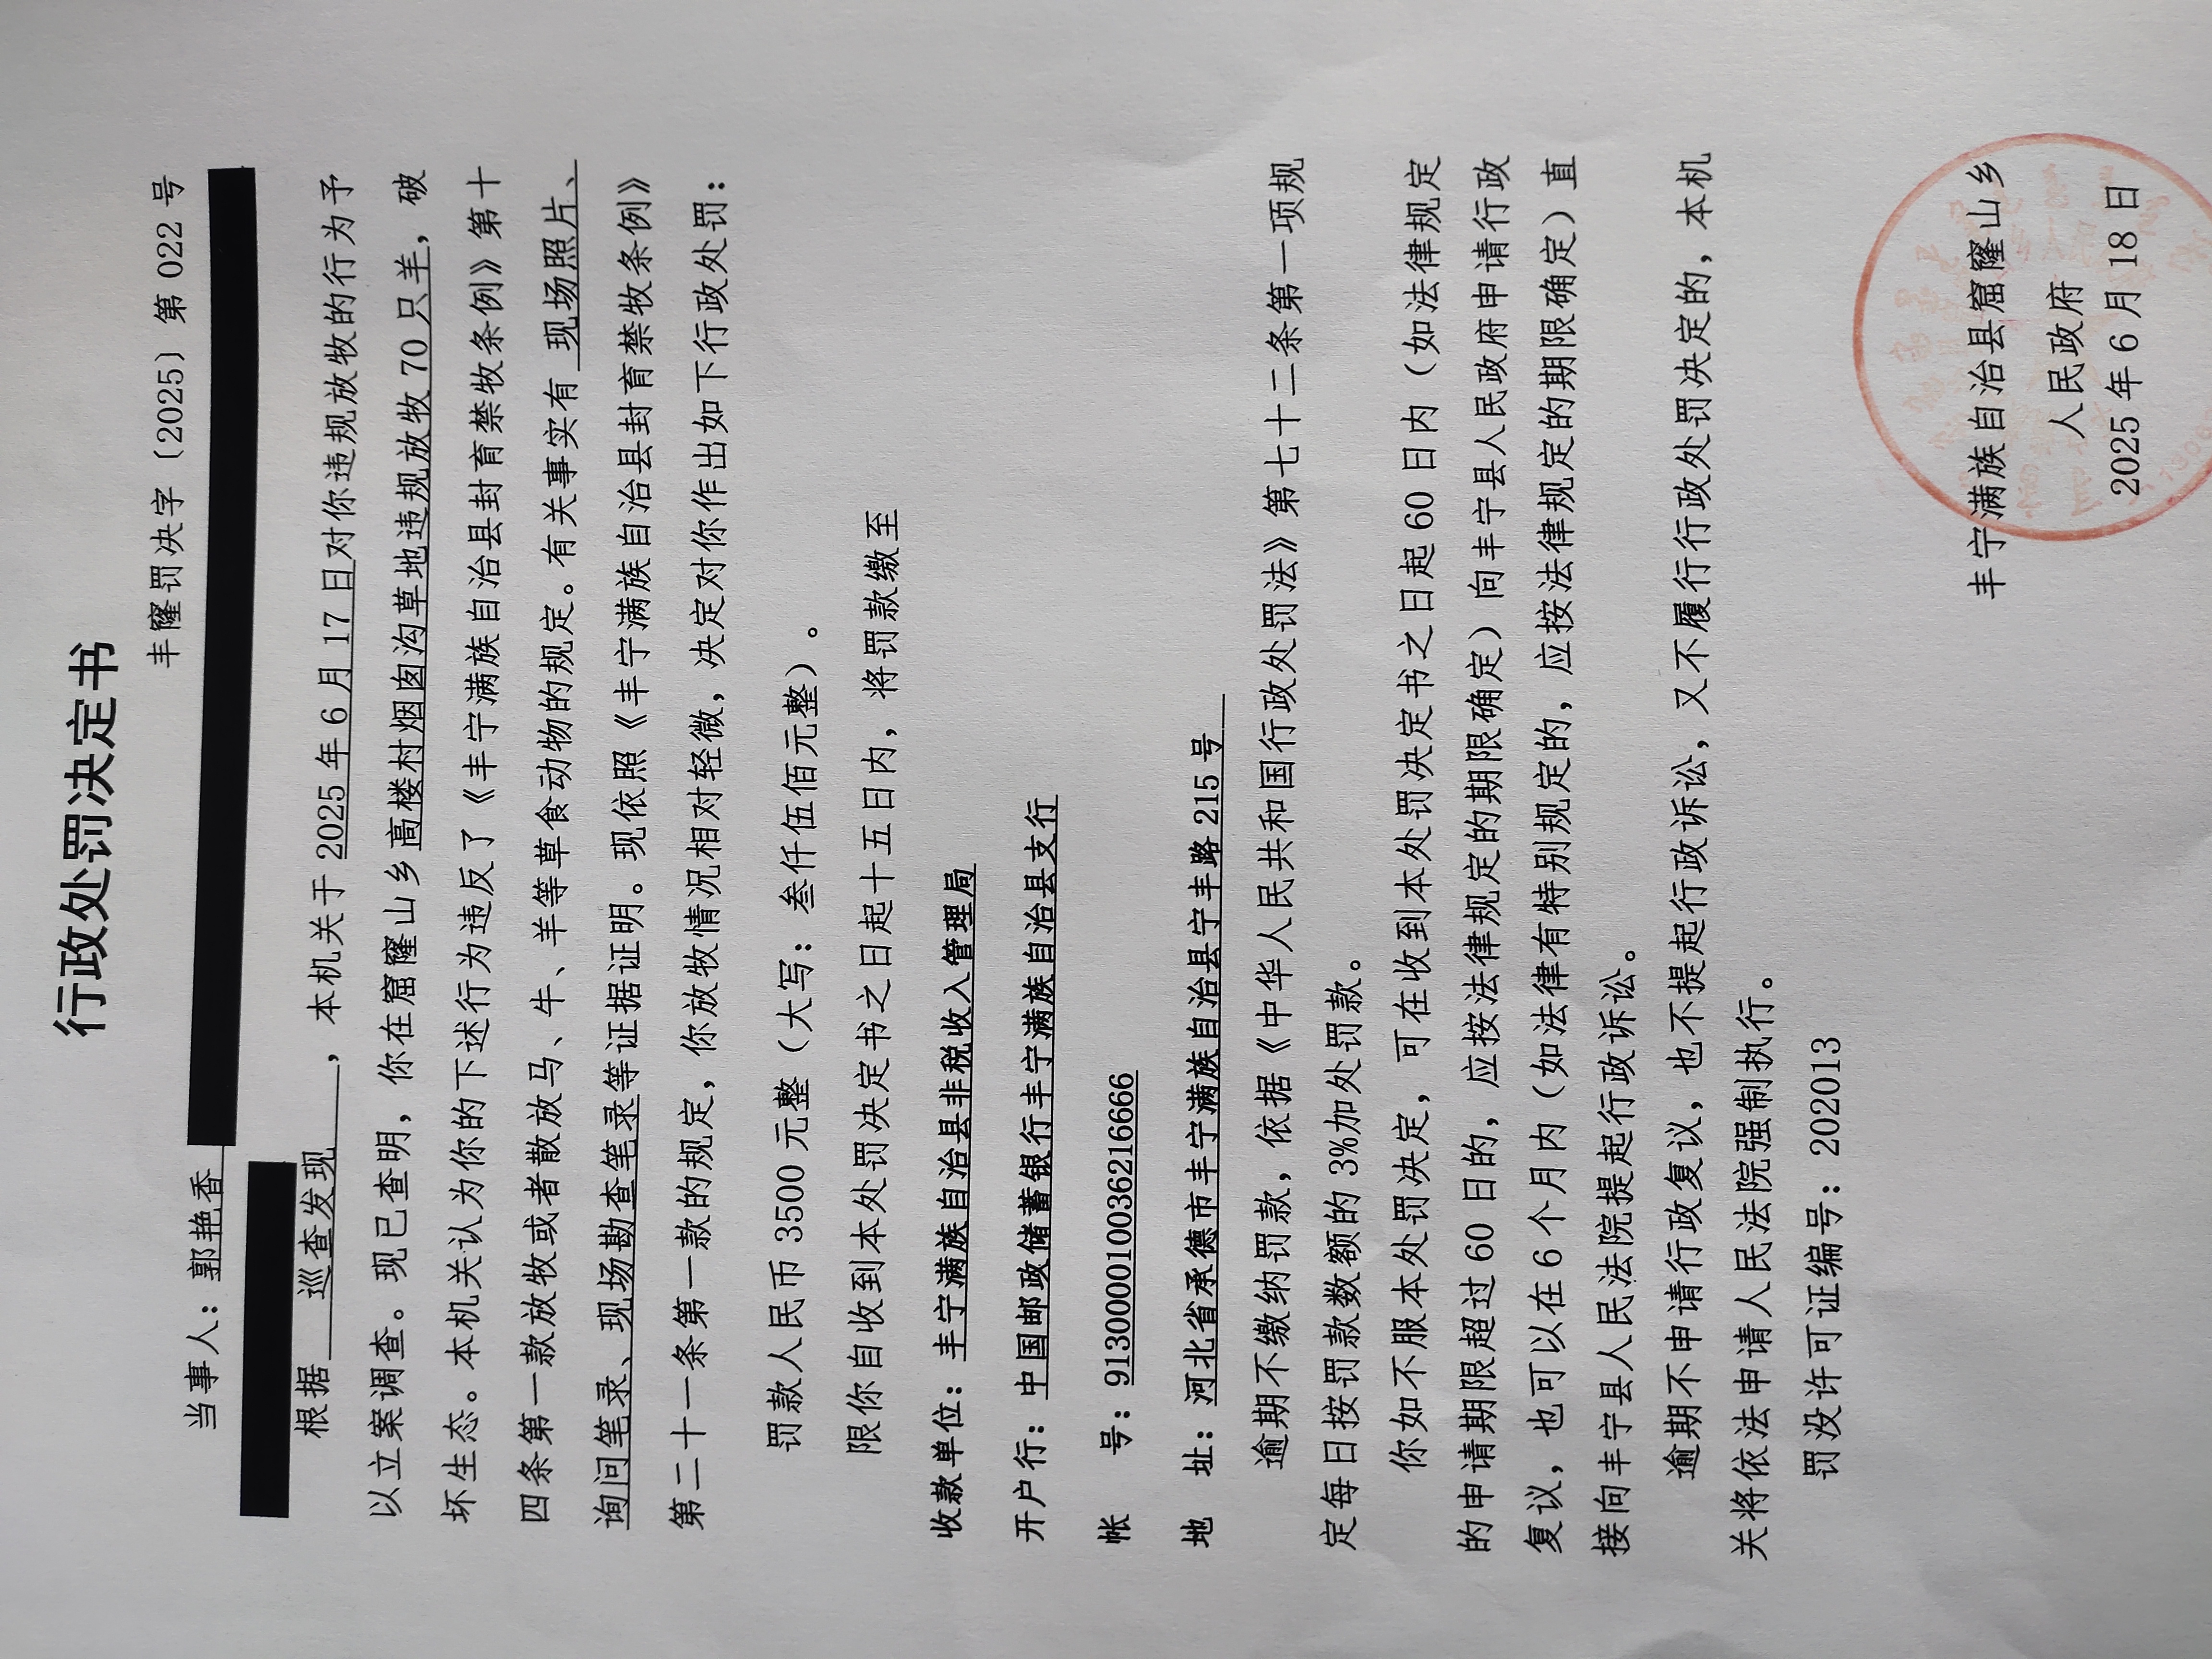 行政处罚决定书
丰窿罚决字〔2025〕第 022 号
当事人：郭艳香
根据 巡查发现 ，本机关于 2025 年 6 月 17 日对你违规放牧的行为予
以立案调查。现已查明，你在窟窿山乡高楼村烟囱沟草地违规放牧 70 只羊，破
坏生态。本机关认为你的下述行为违反了《丰宁满族自治县封育禁牧条例》第十
四条第一款放牧或者散放马、牛、羊等草食动物的规定。有关事实有 现场照片、
询问笔录、现场勘查笔录等证据证明。现依照《丰宁满族自治县封育禁牧条例》
第二十一条第一款的规定，你放牧情况相对轻微，决定对你作出如下行政处罚：
罚款人民币 3500 元整（大写：叁仟伍佰元整）。
限你自收到本处罚决定书之日起十五日内，将罚款缴至
收款单位：丰宁满族自治县非税收入管理局
开户行：中国邮政储蓄银行丰宁满族自治县支行
帐 号：913000010036216666
地 址：河北省承德市丰宁满族自治县宁丰路 215 号
逾期不缴纳罚款，依据《中华人民共和国行政处罚法》第七十二条第一项规
定每日按罚款数额的 3%加处罚款。
你如不服本处罚决定，可在收到本处罚决定书之日起 60 日内（如法律规定
的申请期限超过 60 日的，应按法律规定的期限确定）向丰宁县人民政府申请行政
复议，也可以在 6 个月内（如法律有特别规定的，应按法律规定的期限确定）直
接向丰宁县人民法院提起行政诉讼。
逾期不申请行政复议，也不提起行政诉讼，又不履行行政处罚决定的，本机
关将依法申请人民法院强制执行。
罚没许可证编号：202013
丰宁满族自治县窟窿山乡
人民政府
2025 年 6 月 18 日